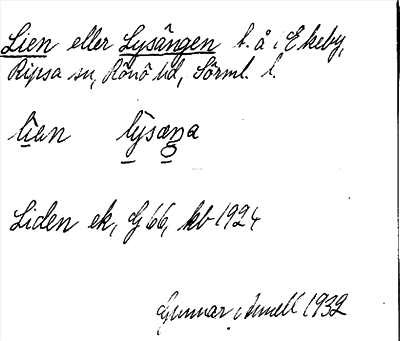 Lien eller Lysängen b. å i Ekeby,
Ripsa sn, Rönö hd, Sörml. l.
līen lȳsæŋa
Liden ek, G 66, kb 1924
Gunnar 1932